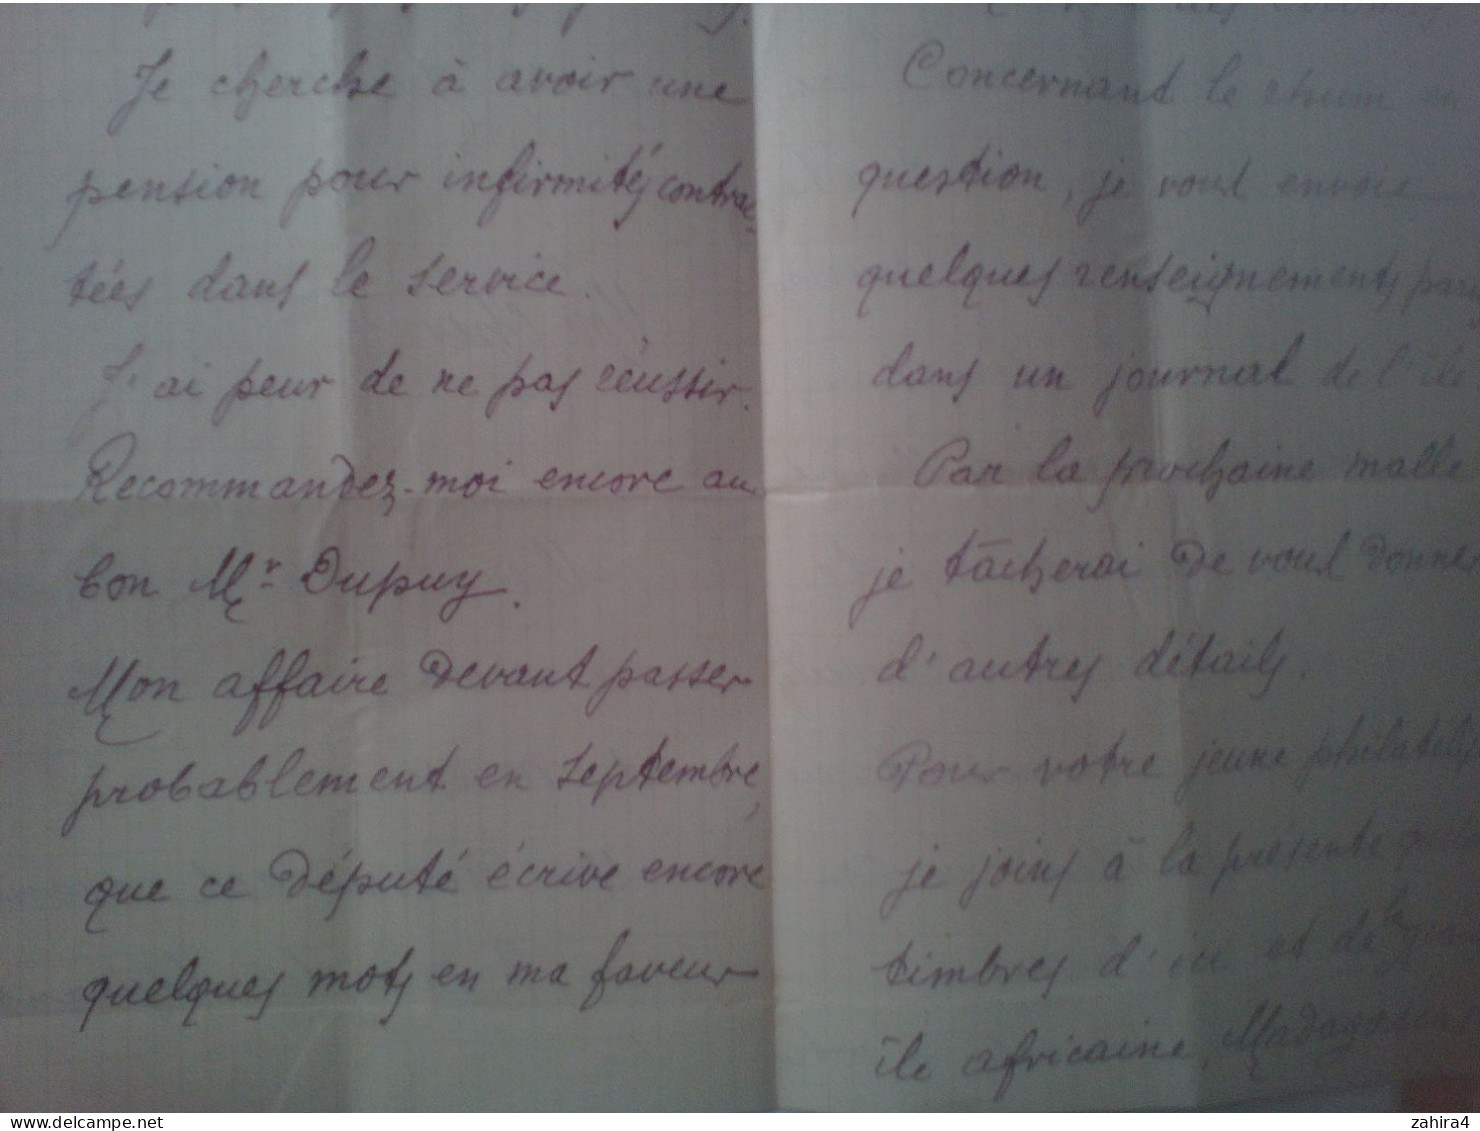 Je cherche à avoir une
pension pour infirmités contrac
tées dans le service.
J'ai peur de ne pas réussir.
Recommandez-moi encore au
bon Mr Dupuy.
Mon affaire devant passer
probablement en septembre,
que ce député écrive encore
quelques mots en ma faveur
Concernant le rhum en
question, je vous envoie
quelques renseignements
dans un journal de l'île
Par la prochaine malle
je tâcherai de vous donner
d'autres détails.
Pour votre jeune
je joins à la présente
timbres d'ici et de la
île africaine, Madagascar
delcampe.net
zahira4